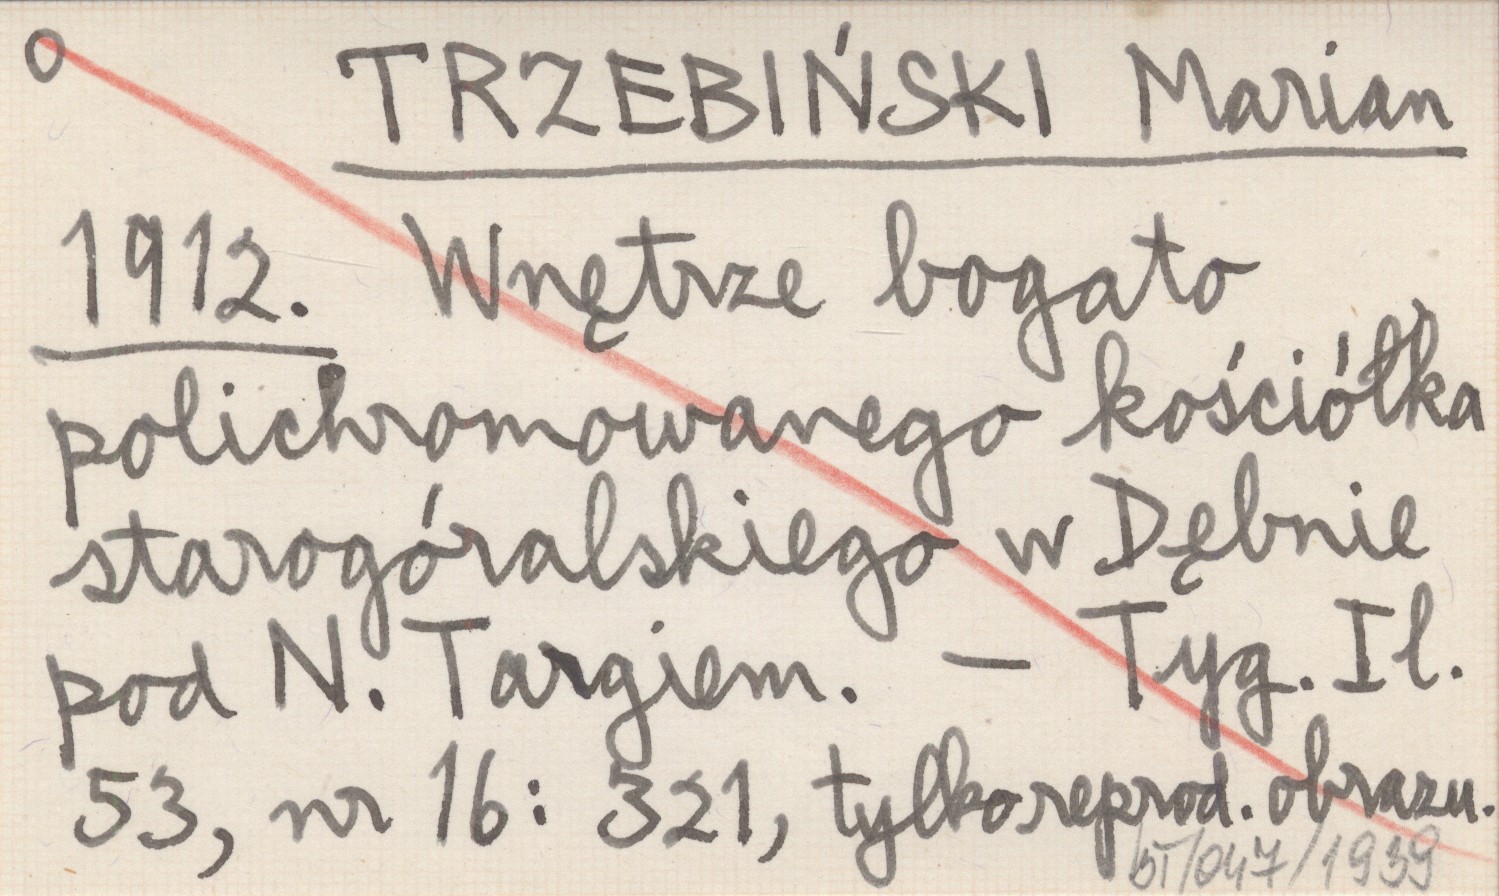 O TRZEBIŃSKI Marian
1912. Wnętrze bogato
polichromowanego kościółka
starogóralskiego w Dębnie
pod N. Targiem. — Tyg. Il.
53, nr 16: 321, tylko reprod. obrazu.
BT/047/1939